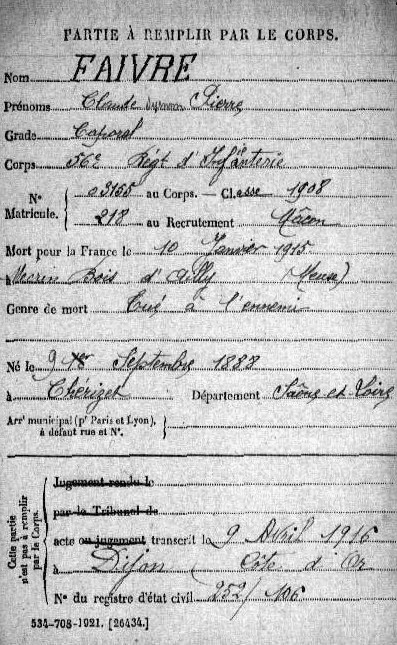 PARTIE À REMPLIR PAR LE CORPS.
Nom FAIVRE
Prénoms Claude Pierre
Grade Caporal
Corps 56e Régt d'Infanterie
N° Matricule. { 03165 au Corps. — Classe 1908
218 au Recrutement Mâcon
Mort pour la France le 10 Janvier 1915
à Bois d'Ailly (Meuse)
Genre de mort Tué à l'ennemi
Né le 9 Septembre 1888
à Cherizet Département Saône et Loire
Arrt municipal (pr Paris et Lyon), à défaut rue et N°. }
Cette partie n'est pas à remplir par le Corps.
Jugement rendu le
par le Tribunal de
acte ou jugement transcrit le 9 Avril 1916
à Dijon Côte d'Or
N° du registre d'état civil 252/106
534-708-1921. [26434.]